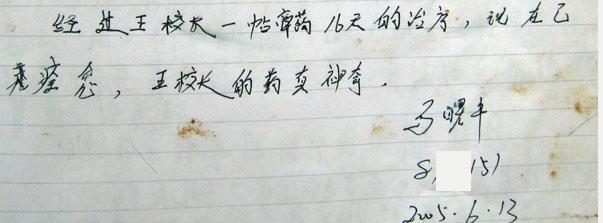 经过王校长一帖膏药16天的治疗，现在已
基痊愈，王校长的药真神奇.
马曙丰
8, 151
2005.6.13